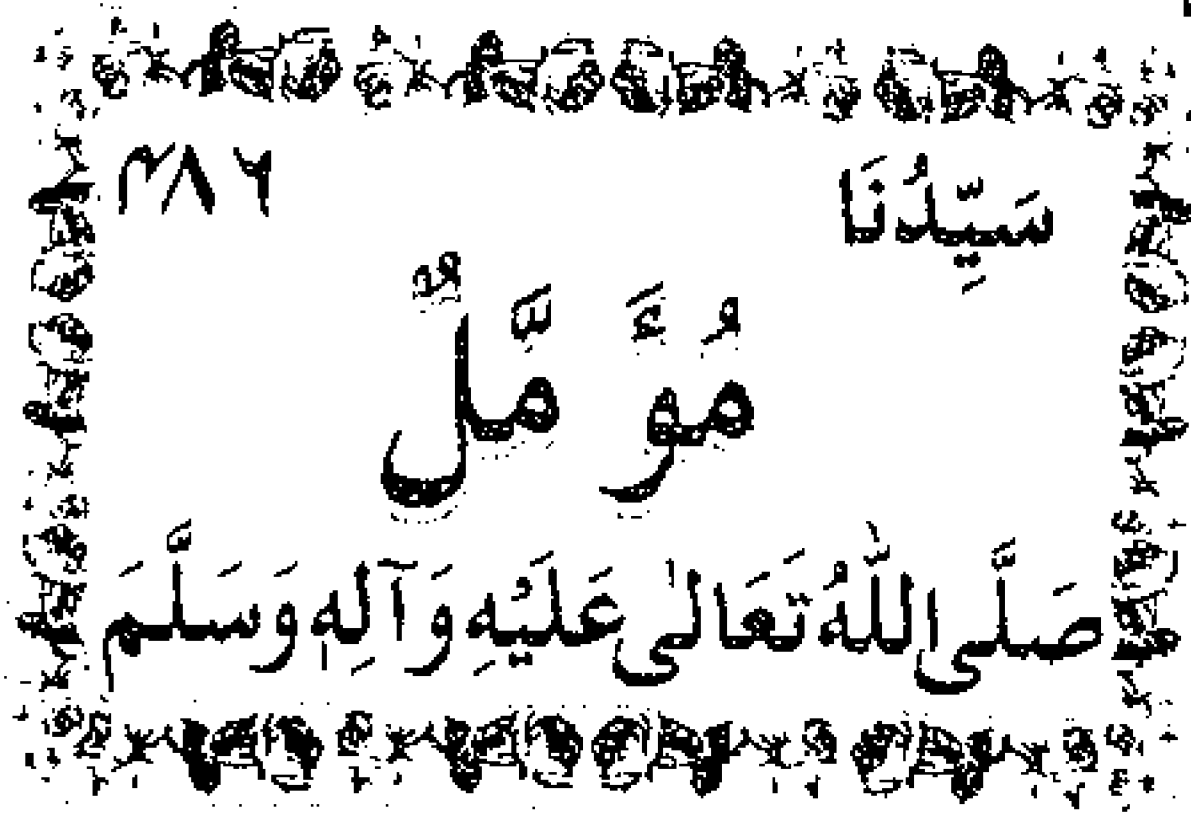 سَيِّدُنَا
مُؤَمَّلٌ
صَلَّى اللّٰهُ تَعَالىٰ عَلَيْهِ وَآلِهِ وَسَلَّمَ